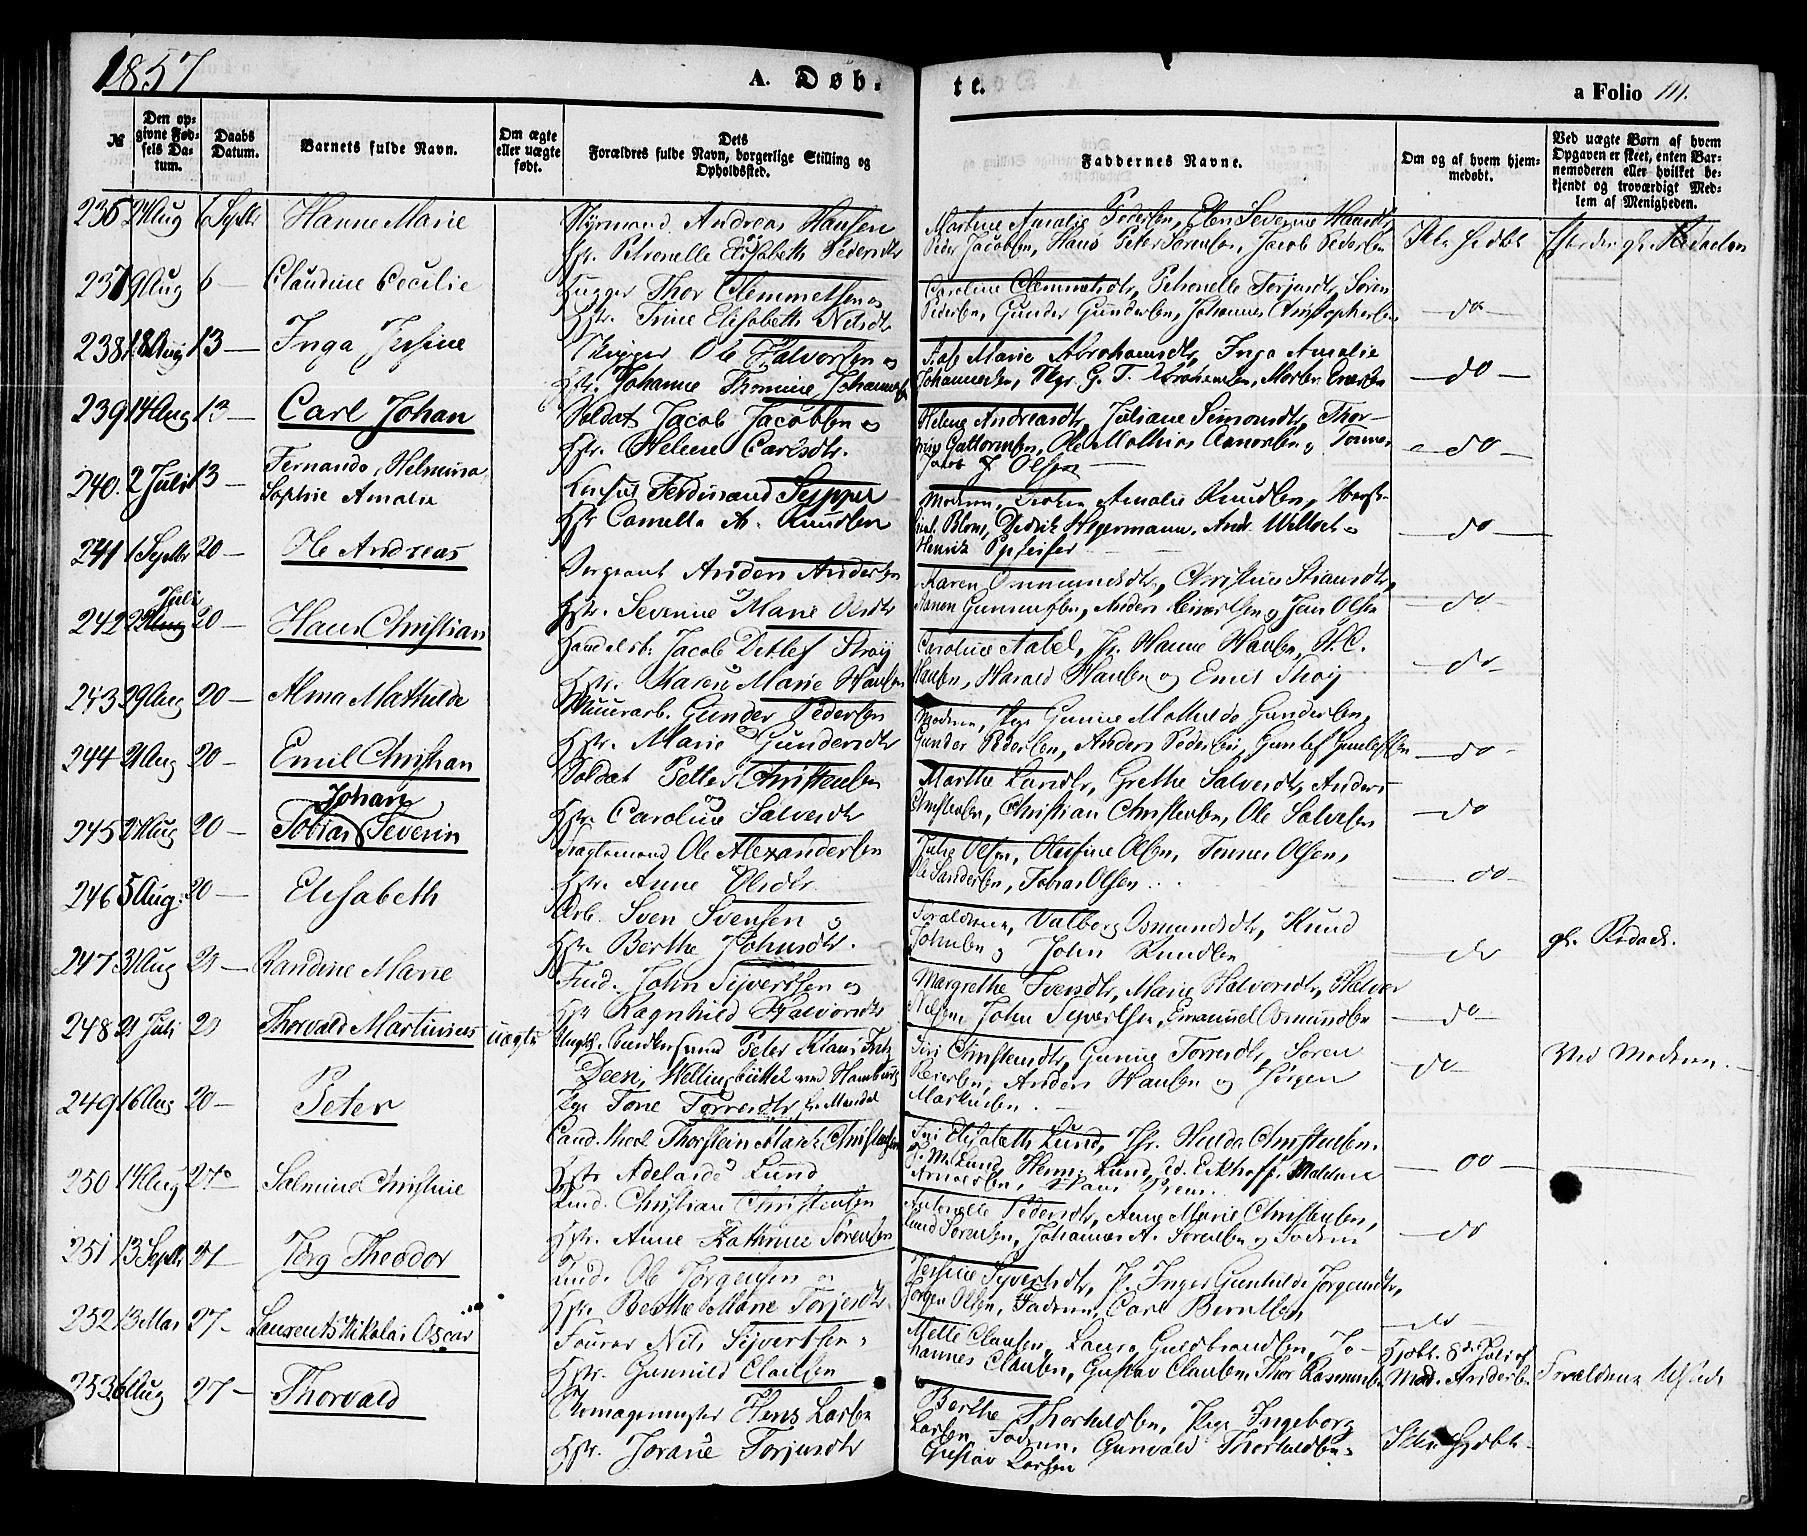 1857
A. Døb-
te.
a Folio 111.
№
Den op-
givne Fød-
sels Da-
tum.
Daabs
Datum.
Barnets fulde Navn.
Om ægte
eller uægte
født.
Dets
Forældres fulde Navn, borgerlige Stilling og
Opholdssted.
Faddernes Navne.
Om og af hvem hjem-
medøbt.
Ved uægte Børn af hvem
Opgaven er skeet, enten Bar-
nemoderen eller hvilket be-
kjendt og troværdigt Med-
lem af Menigheden.
236 24 Aug 6 Septbr Hanne Marie
Styrmand Andreas Hansen
Hstr. Petronelle Elisabeth Pedersdtr
Martine Amalie Pedersen, Elen Severine
Peder Jacobsen, Hans Peter Sørensen, Jacob Pedersen
Ikke hjdbt
237 9 Aug 6 — Claudine Cecilie
Hugger Thor Clemmetsen og
Hstr. Trine Elisabeth Nilsdtr
Caroline Clemmetsdtr, Petronelle Terjesdtr, Søren
Pedersen, Gunder Gundersen, Johannes Christophersen
— do —
238 18 Aug 13 — Inga Josefine
Ole Halvorsen og
Hstr. Johanne Thomine Johannes
Marie Abrahamsdtr, Inga Amalie
Johannesen, G. T. Abrahamsen
— do —
239 14 Aug 13 — Carl Johan
Soldat Jacob Jacobsen og
Hstr. Helene Carlsdtr.
Helene Andreasdtr, Juliane Simonsdtr, Thor-
Guttormsen, Ole Mathias Aanonsen, Tønnes
Olsen
— do —
240. 2 Juli 13 — Fernanda, Helmina,
Sophie Amalie
Konsul Ferdinand
Hstr Camella A. Knudsen
Moderen, Amalie Knudsen,
Blom, Didrik Hegermann, Andr. Willoch og
Henrik Pfeifer
— do —
241 1 Septbr 20 — Ole Andreas
Sergeant Anders Andersen
Hstr. Severine Marie Olsdtr
Karen Ommundsdtr, Christine
Aanon Gunnufsen, Anders og Jens Olsen
— do —
242 22 Juli 20 — Hans Christian
Handelsb. Jacob Detlef Thøy
Hstr. Karen Marie Hansen
Caroline Aabel, Fr. Hanne Hansen, H. C.
Hansen, Harald Hansen og Emil Thøy
— do —
243 29 Aug 20 — Alma Mathilde
Muurarb. Gunder Pedersen
Hstr. Marie Gundersdtr
Moderen, Pige Gunine Mathilde Gundersen,
Gunder Pedersen, Anders Pedersen, Gunlef Gunlefsen
— do —
244 21 Aug 20 — Emil Christian
Soldat Petter Christensen
Hstr. Caroline Salvesdtr
Marthe Larsdtr, Grethe Salvesdtr, Anders
Christensen, Christian Christensen, Ole Salvesen
— do
245 24 Aug 20 — Johan
Tobias Severin
Fragtemand Ole Alexandersen
Hstr. Anne Olsdtr.
Julie Olsen, Olufine Olsen, Tønnes Olsen,
Ole Sandersen, Tobias Olsen
— do —
246 5 Aug: 20 — Elisabeth
Arb. Sven Svensen og
Hstr. Berthe Johnsdtr.
Forældrene, Valborg Osmundsdtr, Knud
Johnsen og John Knudsen
— do
247 31 Aug 20 — Randine Marie
Ind. John Sivertsen og
Hstr Ragnhild Halvorsdtr
Margrethe Svensdtr, Marie Halvorsdtr, Halvor
Nilsen, John Sivertsen, Emanuel Osmundsen
— do —
248 21 Juli 20 Thorvald Martinius uægte
Ungk. Peter Klaus
Deen, Wellingsbüttel ved Hamburg
Pige Tone Torresdtr fr Mandal
Siri Christensdtr, Gunine Torresdtr, Søren
Reiersen, Anders Hansen og Jørgen
Markusen.
do —
Ved Moderen.
249 16 Aug 20 — Peter
Cand. theol. Thorstein Christensen
Hstr Adelaide Lund
Fru Elisabeth Lund, Fr. Hulda Christensen.
Lund, Herm. Lund, Ed. Eckhoff,
— do —
250 14 Aug 27 Salmine Christine
Ind. Christian Christensen
Hstr. Anne Kathrine Sørensen
Antonelle Pedersdtr, Anne Marie Christensen,
Knud Sørensen, Johannes A. Sørensen og Faderen
— do
251 13 Septbr 27 — Jørg Theodor
Ind. Ole Jørgensen og
Hstr. Berthe Marie Torjesdtr
Josfine Syvertsdtr, P. Inger Gunhilde Jørgensdtr,
Jørgen Olsen, Faderen, Carl Berntsen,
— do —
252 13 Mai 27 — Laurents Nikolai Oscar
Nils Sivertsen
Hstr. Gunnild Clausen
Mette Clausen, Laura Guldbrandsen, Jo-
hannes Clausen, Gustav Clausen, Thor Rasmussen
Hjdbt. 8de Juli af
Mad. Andersen
253 6 Aug 27 — Thorvald
Skomagermester Hans Larsen
Hstr. Jorane Torjusdtr
Berthe Thorkildsen, Pige Ingeborg
Larsen, Faderen, Gunvald Thorkildsen,
Gustav Larsen
Ikke Hjdbt.